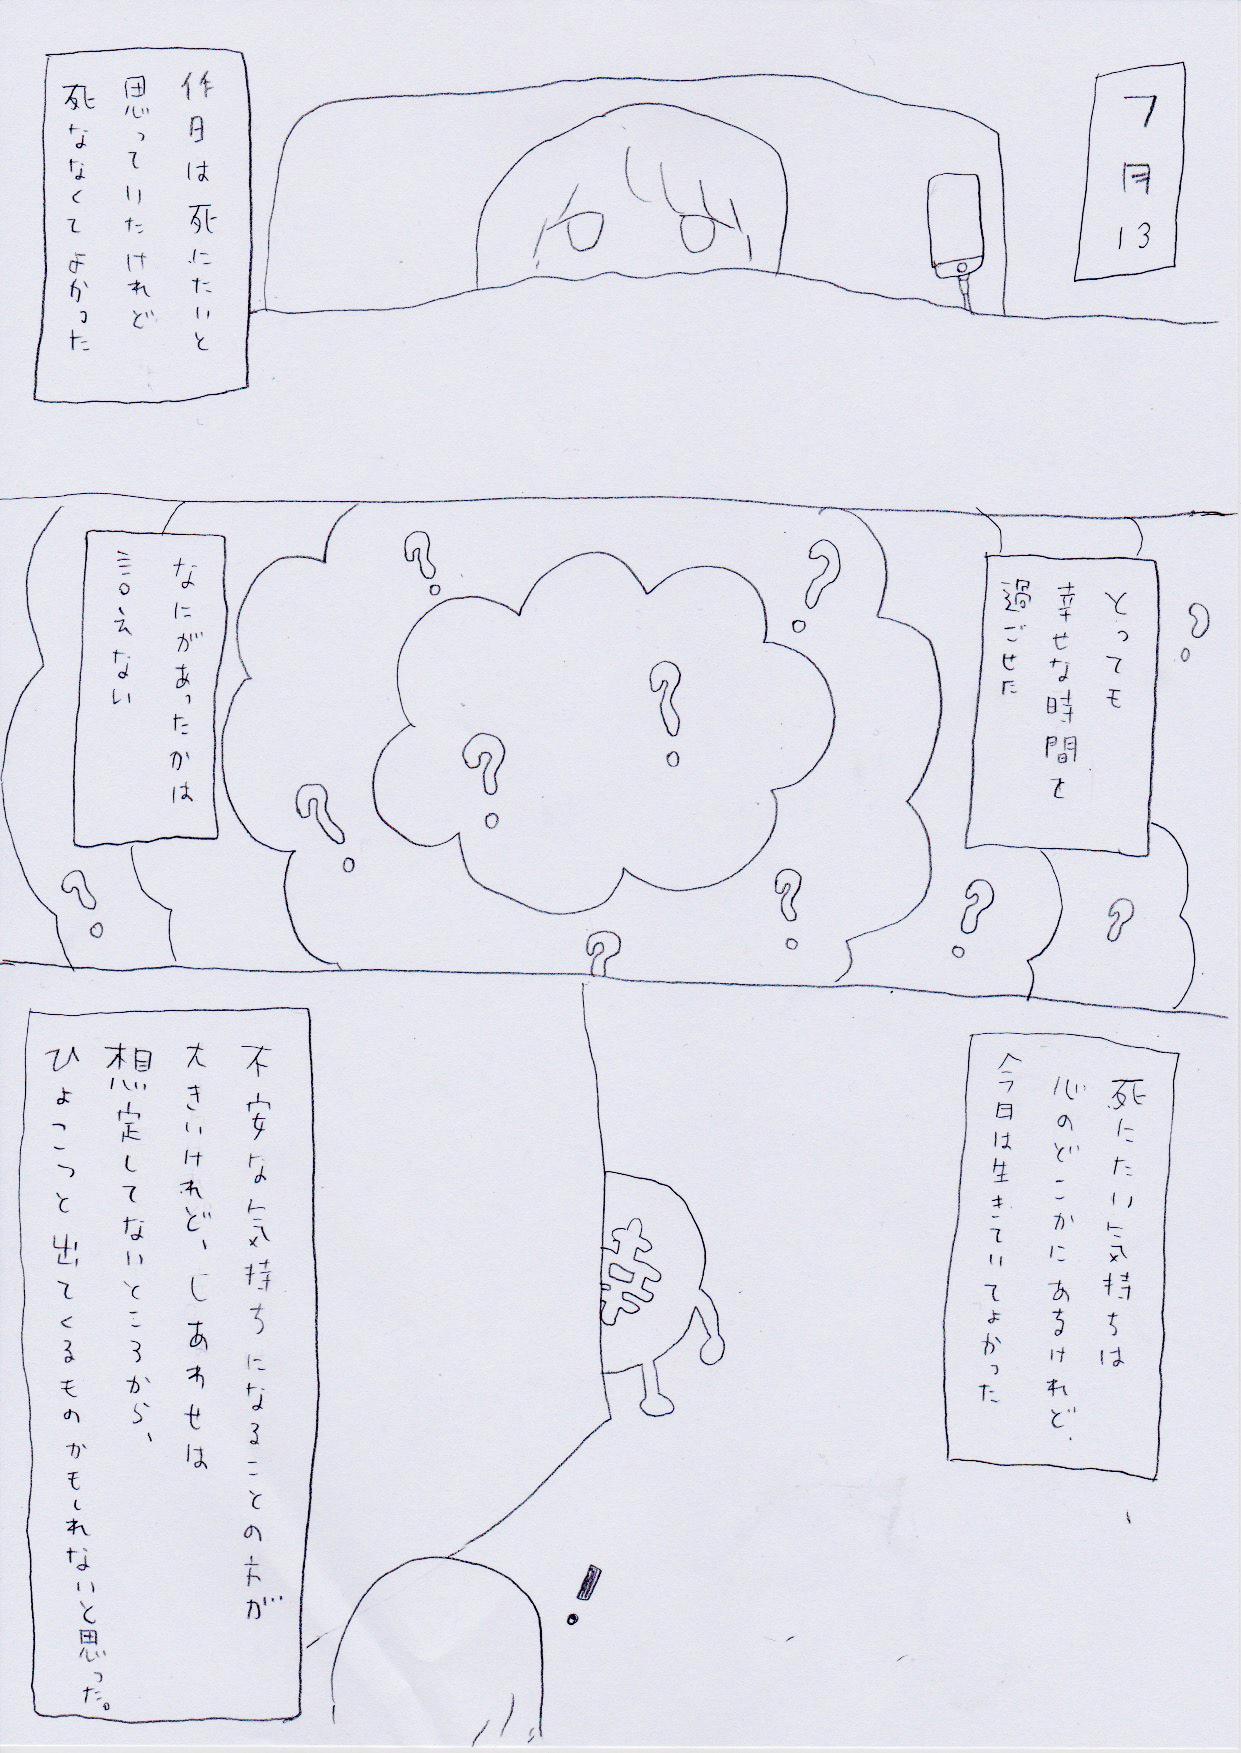 7月13
昨日は死にたいと
思っていたけれど
死ななくてよかった
?
とっても
幸せな時間を
過ごせた
?
?
?
?
?
?
?
?
?
?
なにがあったかは
言えない
死にたい気持ちは
心のどこかにあるけれど、
今日は生きていてよかった
幸
!
不安な気持ちになることの方が
大きいけれど、しあわせは
想定してないところから、
ひょこっと出てくるものかもしれないと思った。